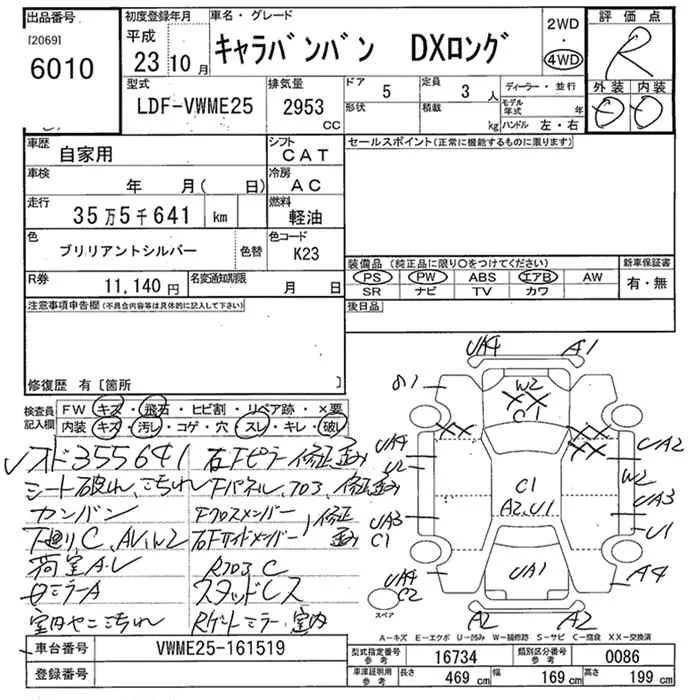 出品番号
[2069]
6010
初度登録年月
平成
23年10月
車名・グレード
キャラバンバン DXロング
2WD
・
4WD
評価点
R
型式
LDF-VWME25
排気量
2953
CC
ドア
5
定員
3人
形状
積載
kg
ディーラー・並行
モデル年式 年
ハンドル 左・右
外装 内装
車歴
自家用
シフト
CAT
セールスポイント(正常に機能するものに限ります)
車検
年 月( 日)
冷房
AC
走行
35万5千641 km
燃料
軽油
色
ブリリアントシルバー
色替
色コード
K23
装備品(純正品に限り○をつけてください)
新車保証書
PS PW ABS エアB AW
SR ナビ TV カワ
有・無
R券
11,140円
名変通知期限
月 日
後日品
注意事項申告欄(不具合内容等は具体的に記入して下さい)
修復歴 有[箇所 ]
検査員記入欄
FW キズ・飛石・ヒビ割・リペア跡・×要
内装 キズ・汚レ・コゲ・穴・スレ・キレ・破レ
355641 右Fピラー修正歪み
シート破れ、こちれ Fパネル、703、修正歪み
カンバン Fクロスメンバー
下廻り、C、 右Fサイドメンバー 修正歪み
荷室A、U R703 C
ミラーA スタッドレス
室内ヤニこちれ Rゲートミラー室内
UA4 A1
W2
XX
C1
XX
XX
UA4
U2
UA2
W2
C1
A2、U1
UA3
C1
UA3
U1
UA1
UA4
C2
A4
スペア
A2 A2
A－キズ E－エクボ U－凹み W－補修跡 S－サビ C－腐食 XX－交換済
車台番号
VWME25-161519
登録番号
型式指定番号
参考
16734
類別区分番号
参考
0086
車庫証明用
参考
長さ
469 cm
幅
169 cm
高さ
199 cm